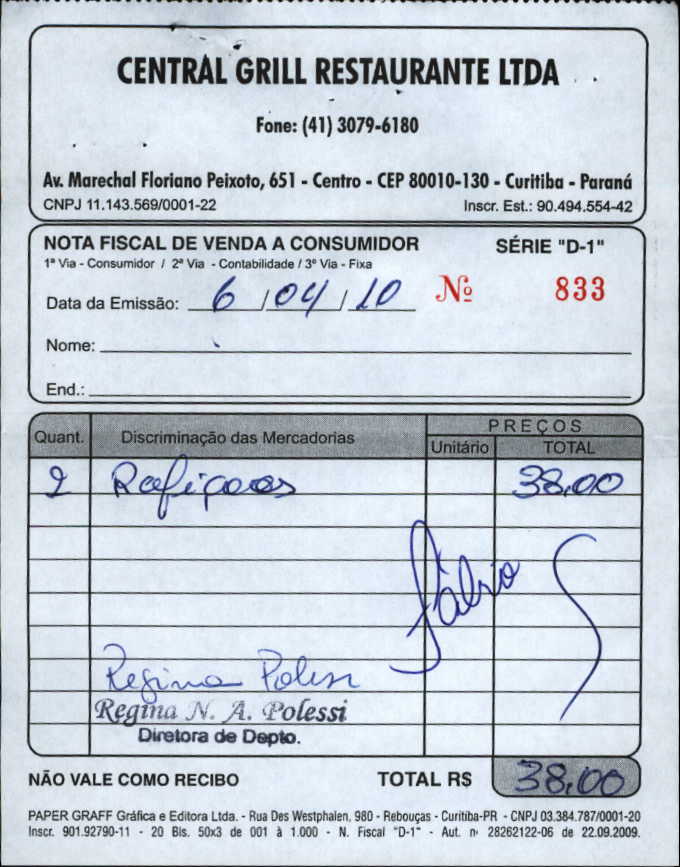 CENTRAL GRILL RESTAURANTE LTDA
Fone: (41) 3079-6180
Av. Marechal Floriano Peixoto, 651 - Centro - CEP 80010-130 - Curitiba - Paraná
CNPJ 11.143.569/0001-22 Inscr. Est.: 90.494.554-42
NOTA FISCAL DE VENDA A CONSUMIDOR SÉRIE "D-1"
1ª Via - Consumidor / 2ª Via - Contabilidade / 3ª Via - Fixa
Data da Emissão: 6 / 04 / 10 Nº 833
Nome:
End.:
PREÇOS
Quant. Discriminação das Mercadorias Unitário TOTAL
2 38,00
Fábio
Regina Polessi
Regina N. A. Polessi
Diretora de Depto.
NÃO VALE COMO RECIBO TOTAL R$ 38,00
PAPER GRAFF Gráfica e Editora Ltda. - Rua Des Westphalen, 980 - Rebouças - Curitiba-PR - CNPJ 03.384.787/0001-20
Inscr. 901.92790-11 - 20 Bls. 50x3 de 001 à 1.000 - N. Fiscal "D-1" - Aut. nº 28262122-06 de 22.09.2009.